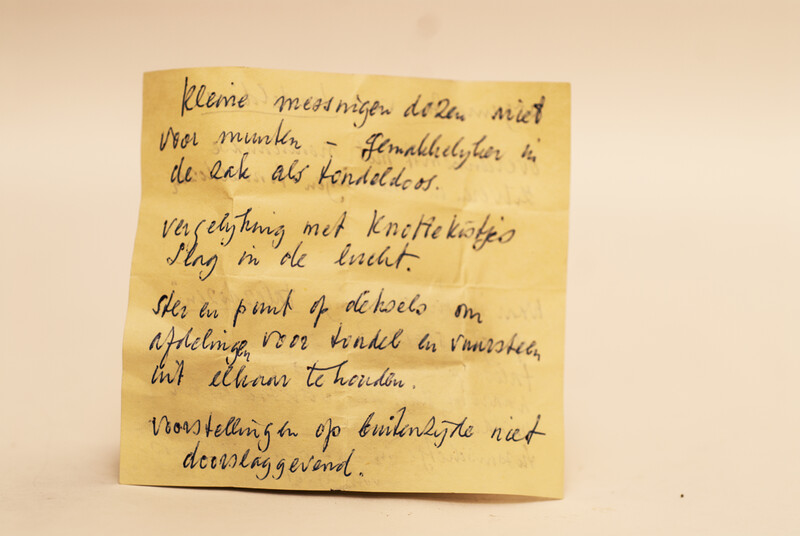 kleine messingen dozen niet
voor munten - gemakkelijker in
de zak als tondeldoos.
vergelijking met Knottekistjes
slag in de lucht.
ster en punt op deksels om
afdelingen voor tondel en vuursteen
uit elkaar te houden.
voorstellingen op buitenzijde niet
doorslaggevend.